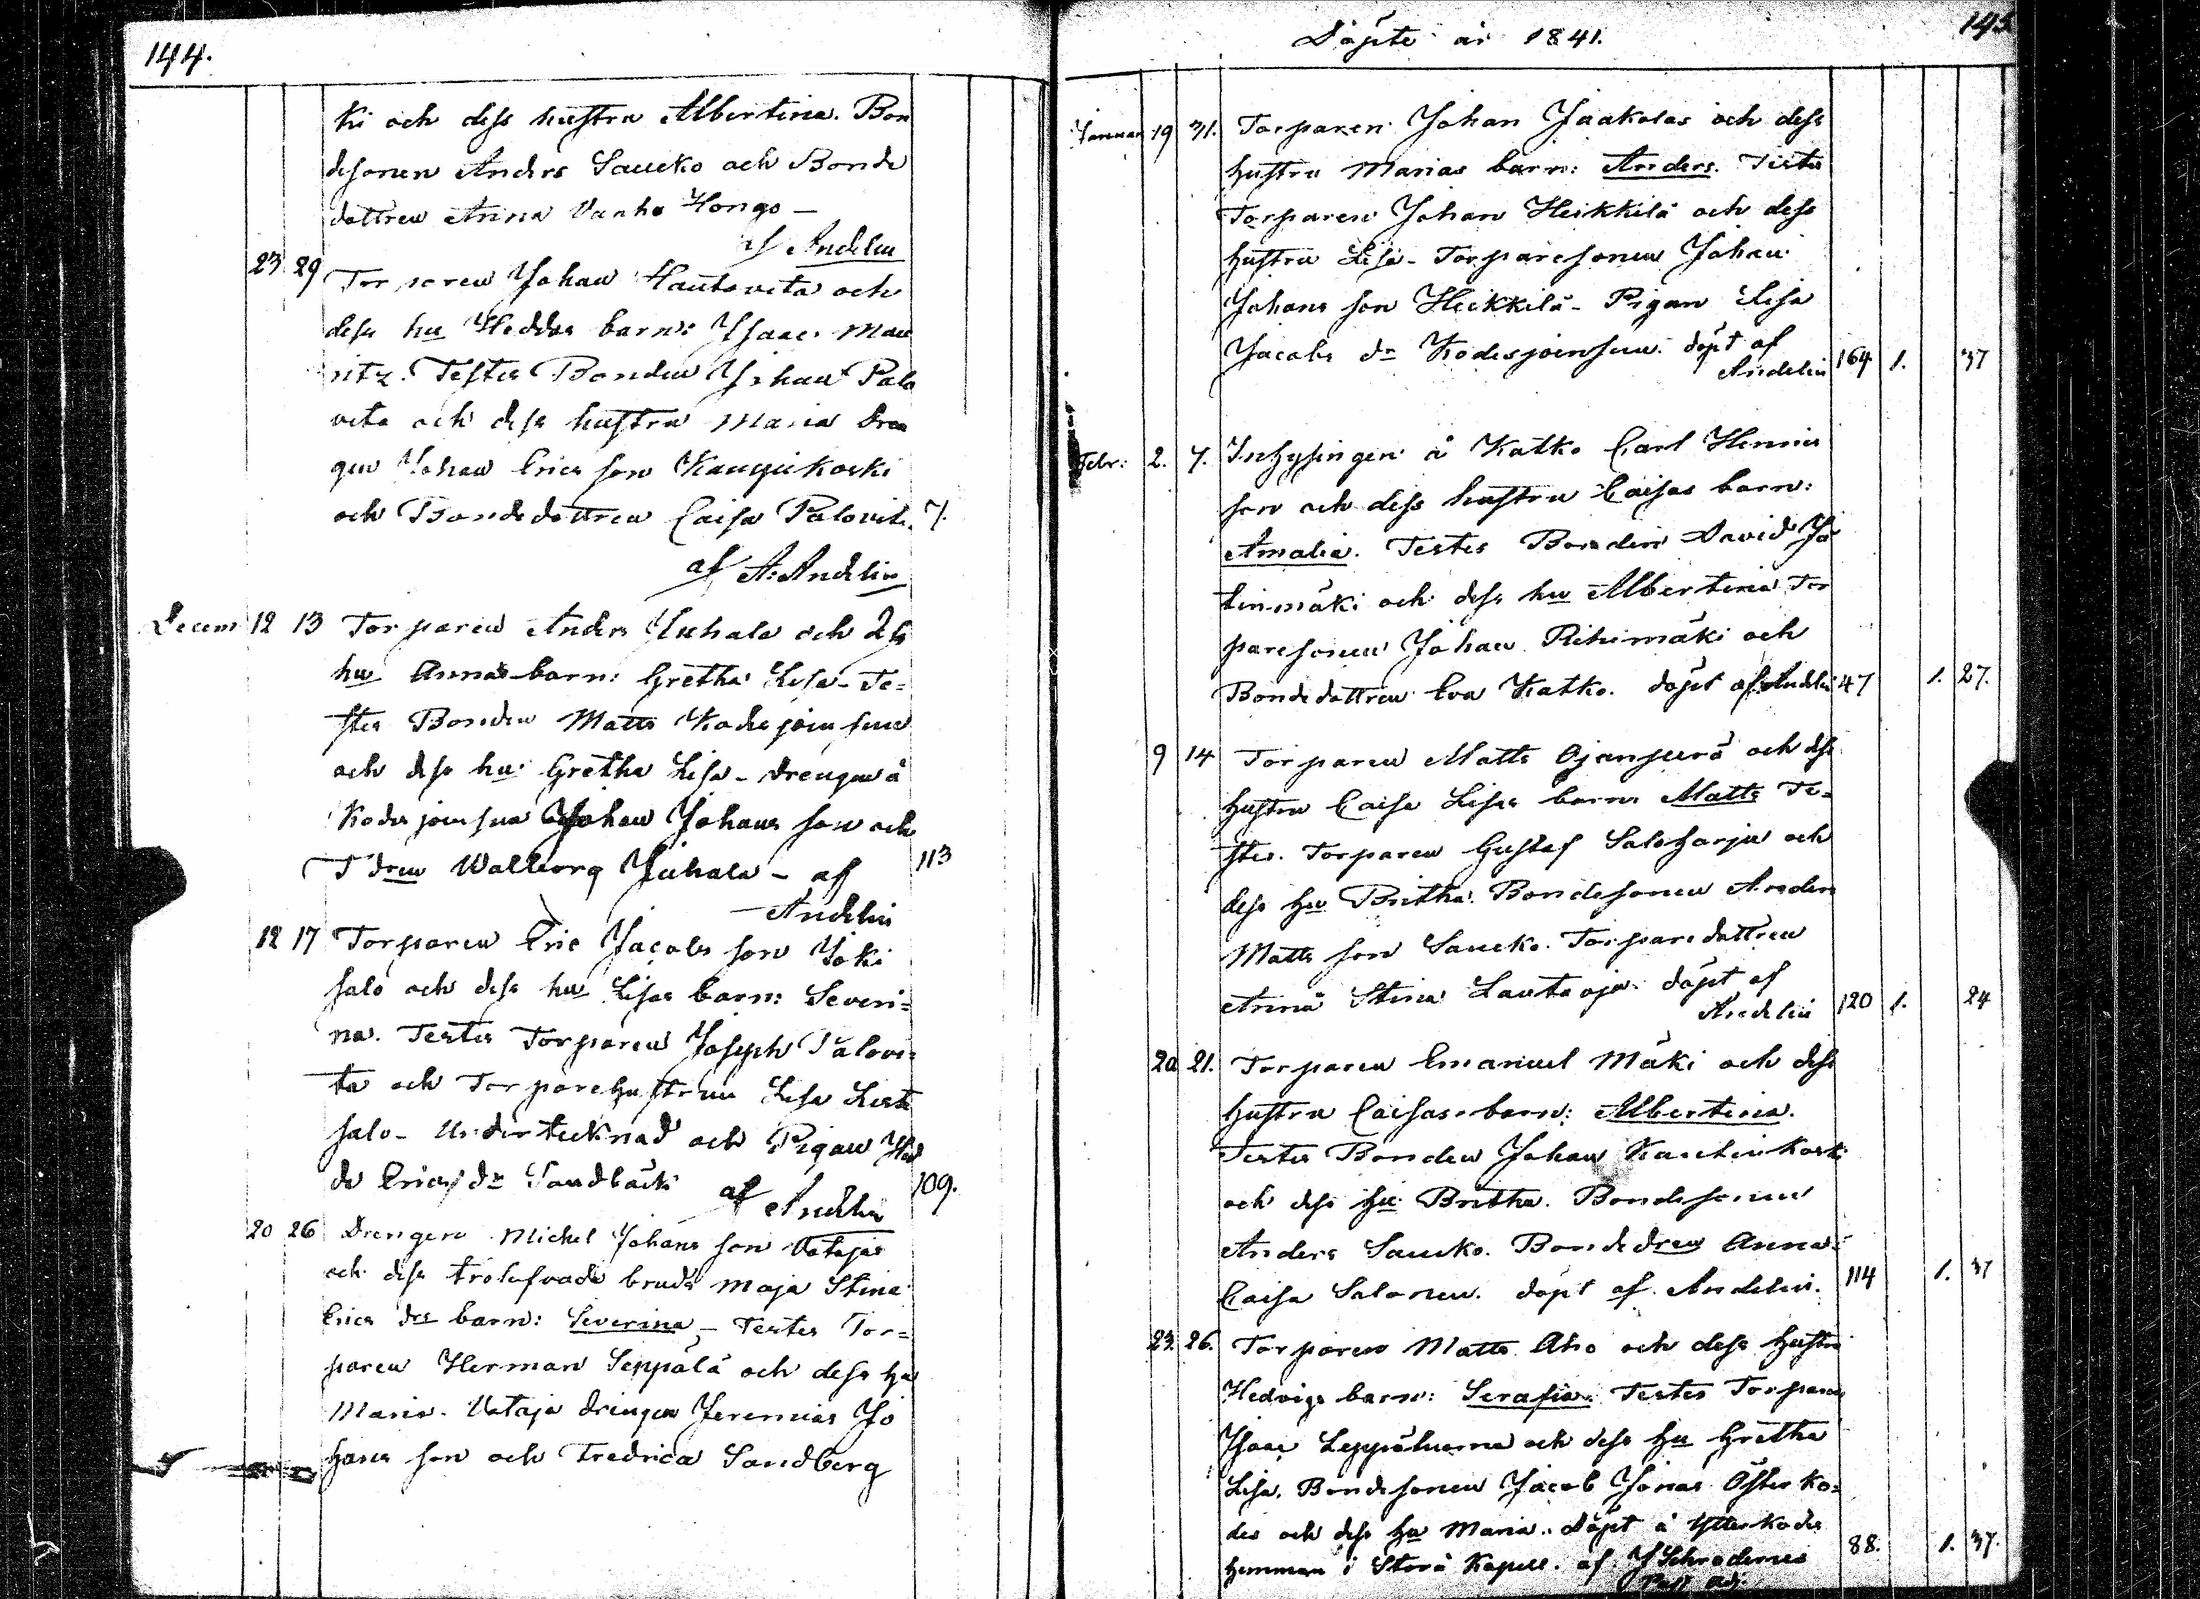 144.
ki och dess hustru Albertina. Bon
desonen Anders Saucko och Bonde
dottren Anna Vanha Hongo -
af Andelin
23 29 Torparen Johan Hautaveta och
dess hu Heddas barn: Isaac Mau
ritz. Testes Bonden Johan Palo
veta och dess hustru Maria Dren
gen Johan Erics son Kaupikoski
och Bondedottren Caisa Palovit. 7.
af A. Andelin
Decem 12 13 Torparen Anders Juhala och dess
hu Annas barn: Gretha Lisa - Te=
stes Bonden Matts Kodesjoensuu
och dess hu Gretha Lisa - drengen å
Kodesjoensuu Johan Johans son och
T dren Wallborg Juhala - af 113
Andelin
12 17 Torparen Eric Jacobs son Joki
salo och dess hu Lisas barn: Severi=
na. Testes Torparen Joseph Palove=
ta och Torparehustrun Lisa
salo - Undertecknad och Pigan Hed
da Erics dr Sandbäck 109.
af Andelin
20 26 Drengen Michel Johans son Vatajas
och dess trolofvade bruds Maja Stina
Erics drs barn: Severina - Testes Tor=
paren Herman Seppälä och dess hu
Maria. Vataja drengen Jeremias Jo
hans son och Fredrica Sandberg
Döpte år 1841. 145
Januar 19 31. Torparen Johan Jaakolas och dess
hustru Marias barn: Anders. Testes
Torparen Johan Heikkilä och dess
hustru Lisa - Torparesonen Johan
Johans son Heikkilä - Pigan Lisa
Jacobs dr Kodesjoensuu. döpt af
Andelin 164 1. 37
Febr: 2. 7. Inhysingen å Katko Carl Henrics
son och dess hustru Caisas barn:
Amalia. Testes Bonden David Jä
tinmäki och dess hu Albertina Tor
paresonen Johan Rihimäki och
Bondedottren Eva Katko. döpt af Andelin 47 1. 27.
9 14 Torparen Matts Ojanperä och dess
hustru Caisa Lisas barn Matts Te=
stes. Torparen Gustaf Saloharju och
dess hu Britha. Bondesonen Anders
Matts son Saucko. Torparedottren
Anna Stina Lautaoja. döpt af
Andelin 120 1. 24
20 21. Torparen Emanuel Mäki och dess
hustru Caisas barn: Albertina.
Testes Bonden Johan Kautinkoski
och dess hu Britha. Bondesonen
Anders Saucko. Bondedren Anna
Caisa Salonen. döpt af Andelin. 114 1. 37
23. 26. Torparen Matts Aho och dess hustru
Hedvigs barn: Serafia. Testes Torparen
Isaac Leppäluoma och dess hu Gretha
Lisa. Bondesonen Jacob Jonas Öster Ko=
des och dess hu Maria. döpt å Ytter Kodes
hemman i Storå Kapell. af J Schroderus 88. 1. 37.
Past. Adj.